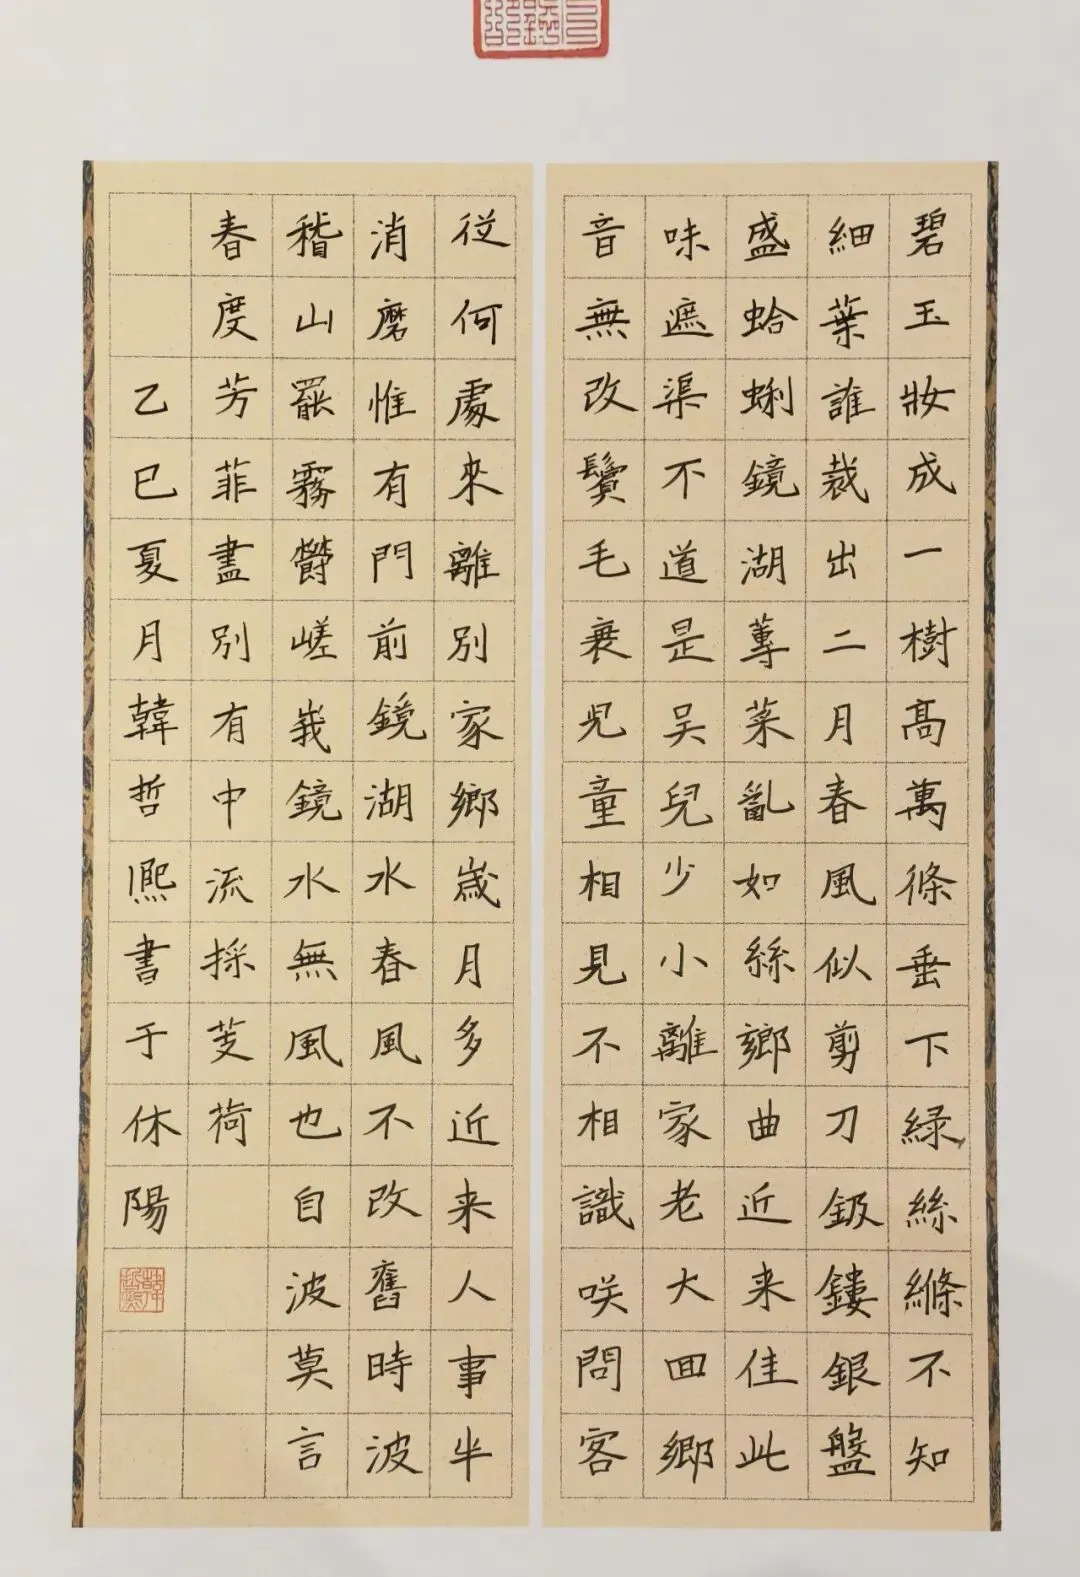 碧玉妝成一樹高萬條垂下緑絲縧不知
細葉誰裁出二月春風似剪刀鈒鏤銀盤
盛蛤蜊鏡湖蓴菜亂如絲鄉曲近来佳此
味遮渠不道是吴兒少小離家老大回鄉
音無改鬢毛衰兒童相見不相識咲問客
從何處來離別家鄉歲月多近来人事半
消磨惟有門前鏡湖水春風不改舊時波
稽山罷霧欝嵯峩鏡水無風也自波莫言
春度芳菲盡別有中流採芰荷
乙巳夏月韓哲熙書于休陽